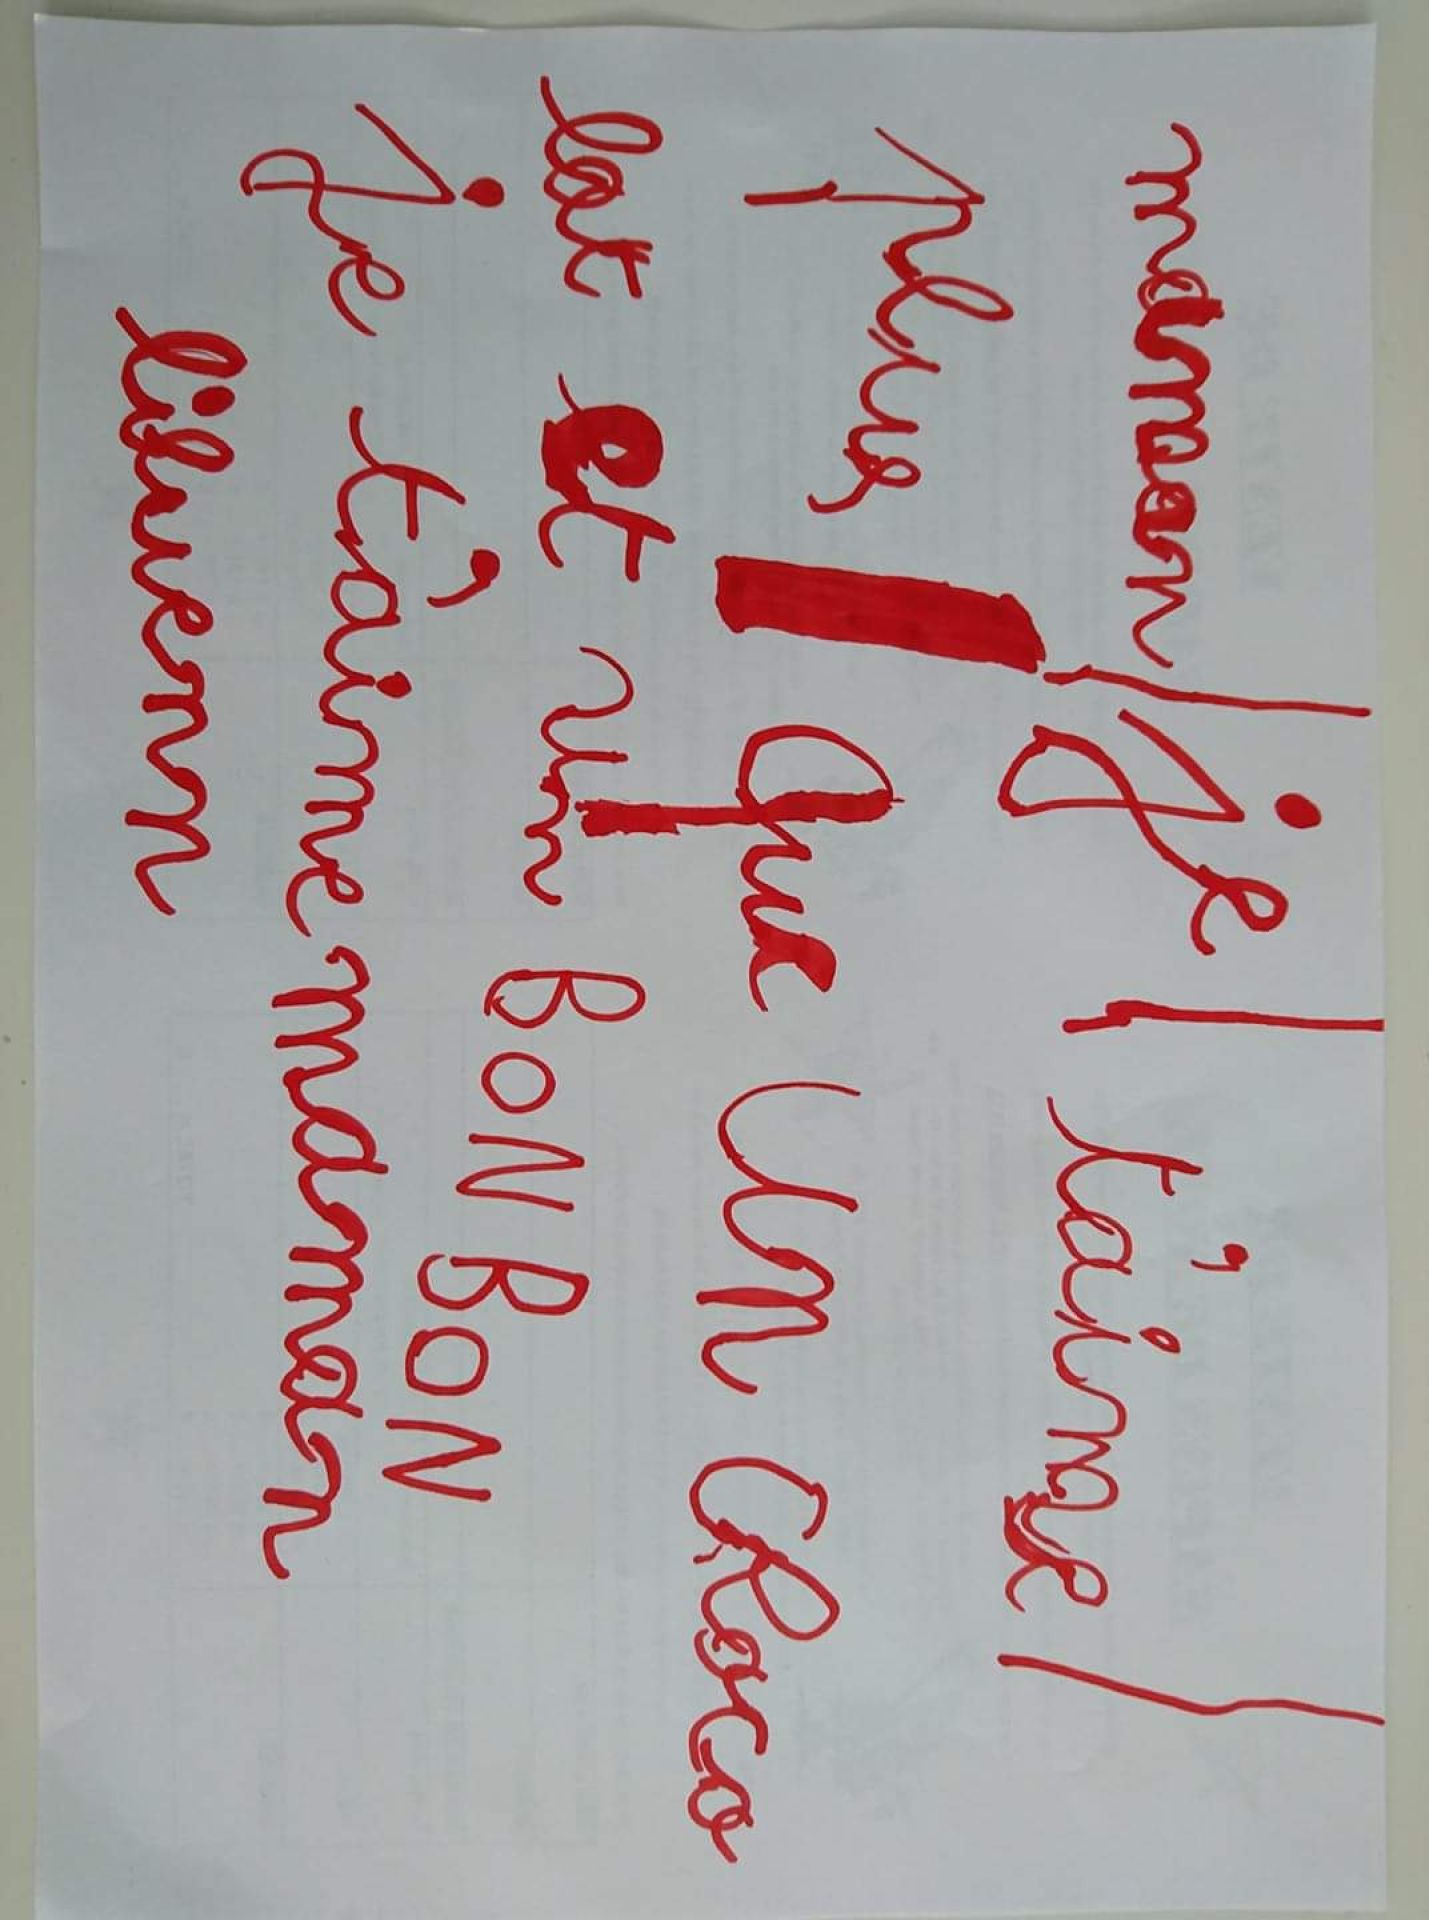 maman je t'aime
plus Que Un Choco
lat et un BoNBoN
je t'aime maman
lilwenn